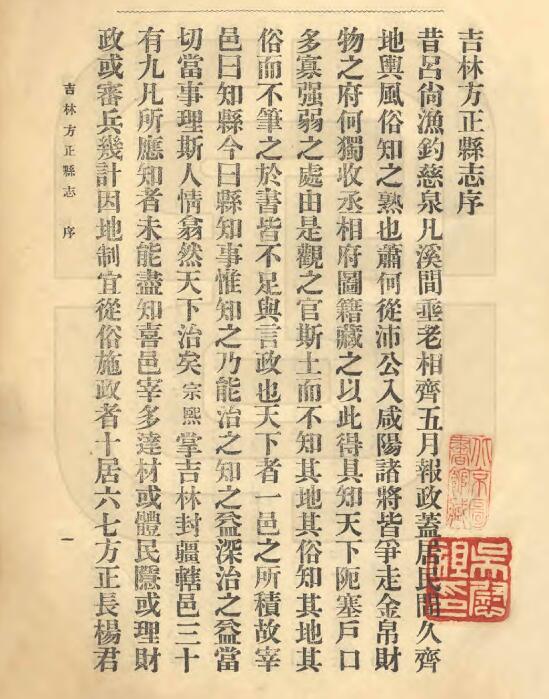 吉林方正縣志序
昔呂尙漁釣慈泉凡溪間垂老相齊五月報政蓋居民間久齊
地輿風俗知之熟也蕭何從沛公入咸陽諸將皆爭走金帛財
物之府何獨收丞相府圖籍藏之以此得具知天下阨塞戶口
多寡强弱之處由是觀之官斯土而不知其地其俗知其地其
俗而不筆之於書皆不足與言政也天下者一邑之所積故宰
邑曰知縣今曰縣知事惟知之乃能治之知之益深治之益當
切當事理斯人情翕然天下治矣宗熙掌吉林封疆轄邑三十
有九凡所應知者未能盡知喜邑宰多達材或體民隱或理財
政或審兵幾計因地制宜從俗施政者十居六七方正長楊君
吉林方正縣志 序
一